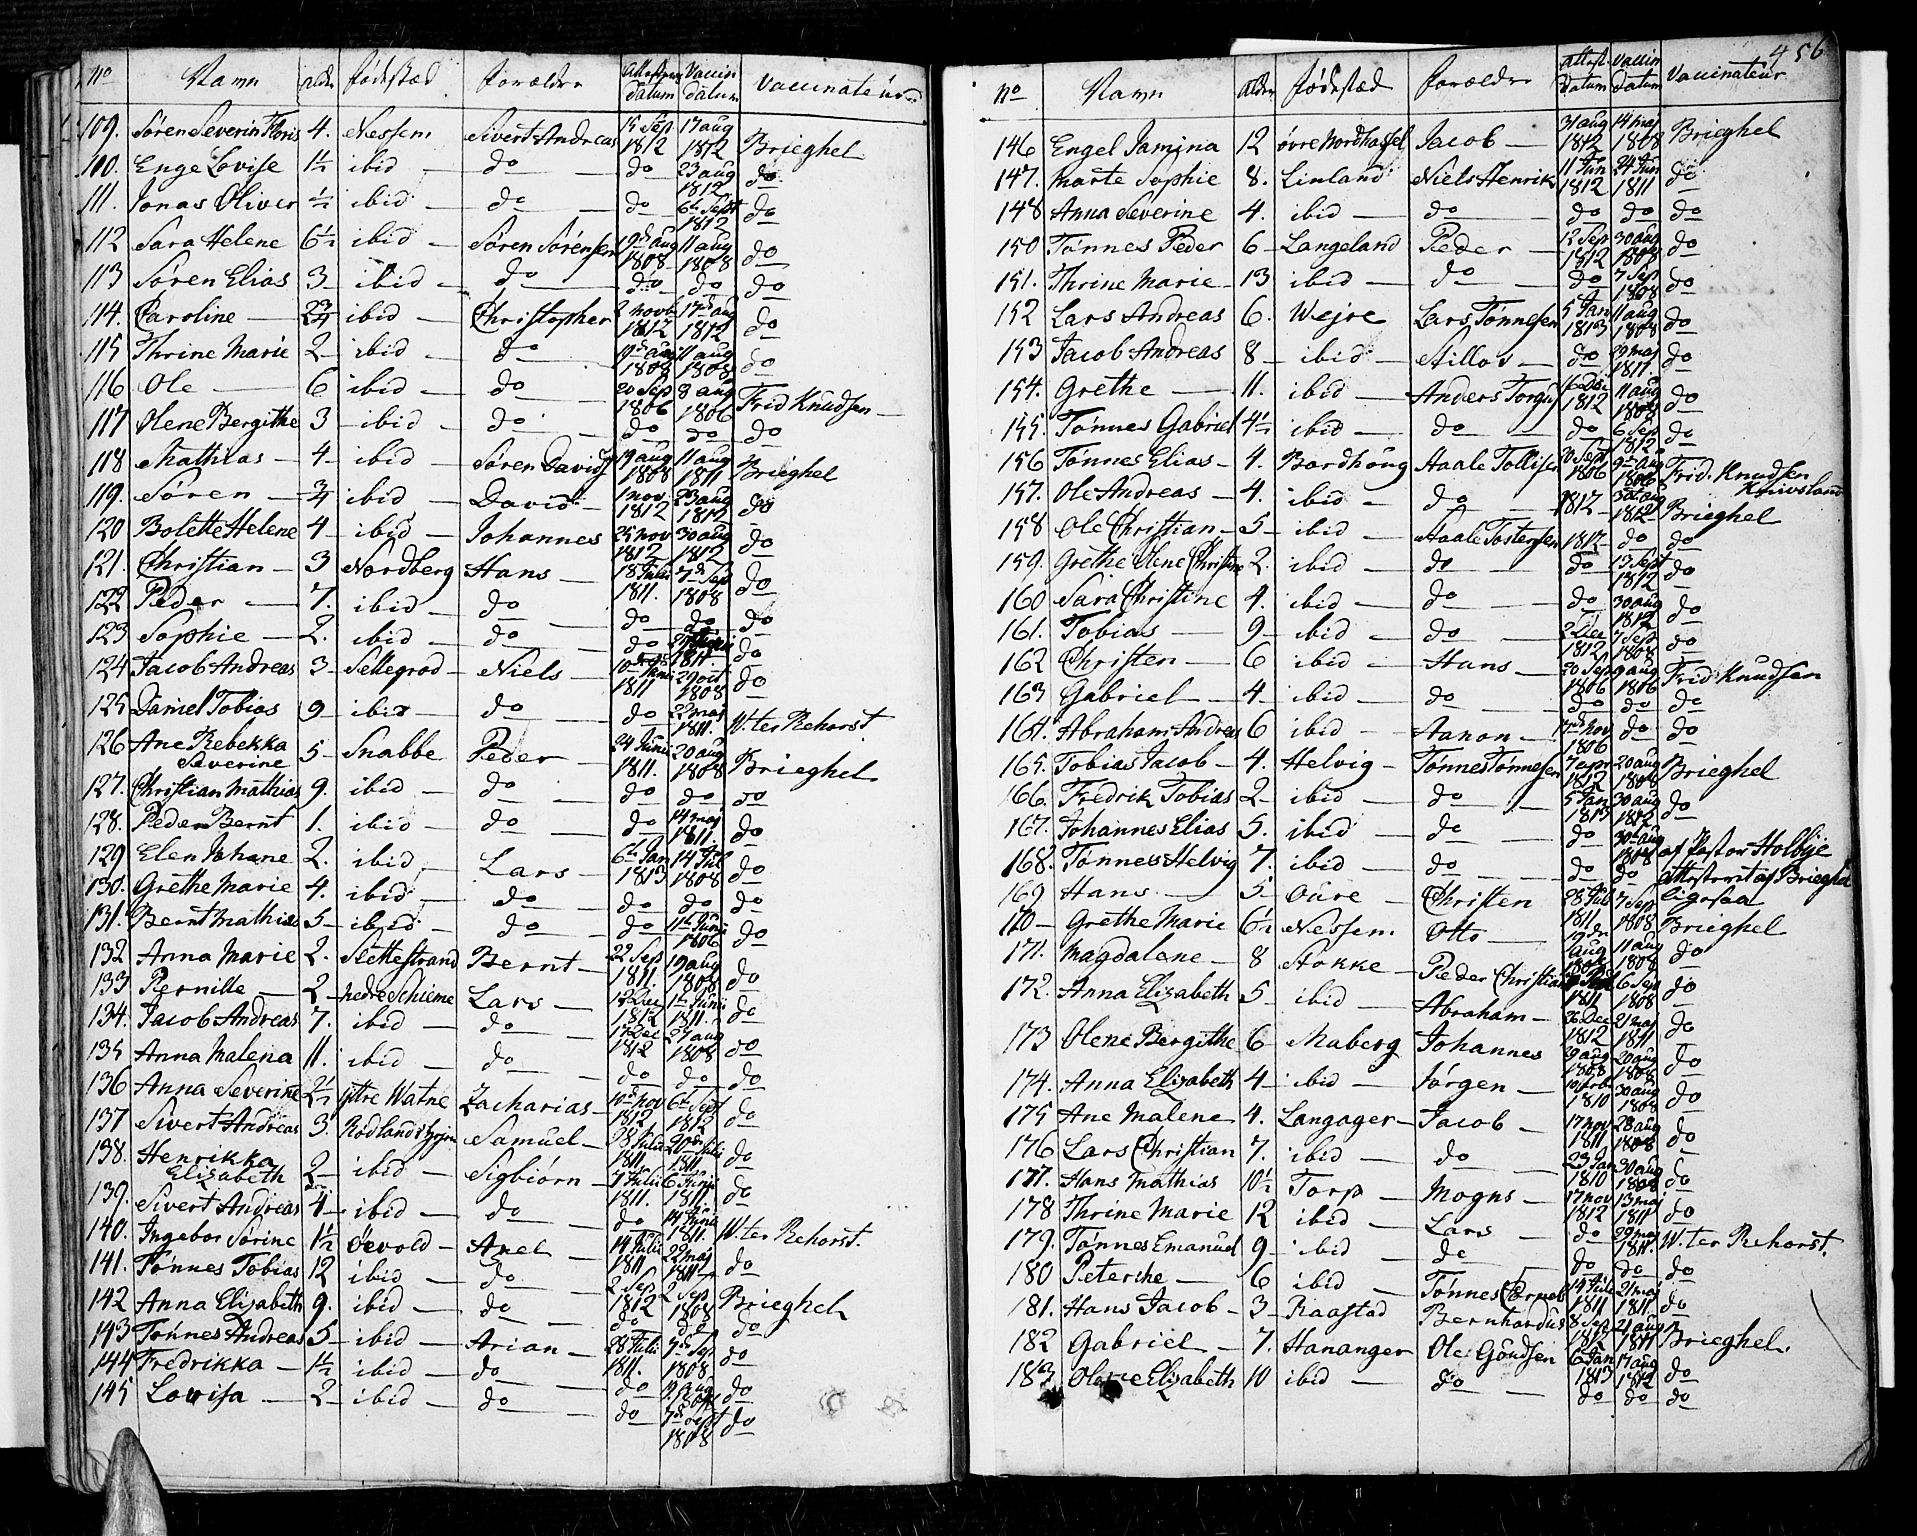 No Navn Alder Fødestæd Forældre Attestens datum Vaccin datum Vaccinateur
109. Søren Severin Floris 4. Nessem Sivert Andreas 15 Sep 1812 17 aug 1812 Brieghel
110. Enge Lovise 1½ ibid do do 23 aug 1812 do
111. Jonas Oliver ½ ibid do do 6te Sept 1812 do
112 Sara Helene 6½ ibid Søren Sørensen 19de aug 1808 11 aug 1808 do
113 Søren Elias 3 ibid do do do do
114. Caroline ibid Christopher 2 novb 1812 17de aug 1812 do
115 Thrine Marie 2 ibid do 19de aug 1808 11 aug 1808 do
116 Ole 6 ibid do 20 Sep 1806 8 aug 1806 Frid Knudsen
117 Olene Bergithe 3 ibid do do do do
118 Mathias 4 ibid Søren Davids 19 aug 1808 11 aug 1811 Brieghel
119. Søren ¾ ibid David 1 nov 1812 23 aug 1812 do
120 Bolette Helene 4 ibid Johannes 25 nov 1812 30 aug 1812 do
121. Christian 3 Nordberg Hans 18 Julii 1811. 7de Sep 1808 do
122 Peder 7. ibid do do do do
123 Sophie 2. ibid do do 1811. do
124 Jacob Andreas 3 Sellegrod Niels 1811 29 oct 1808 do
125 Daniel Tobias 9 ibid do do 22 maj 1811. W. ter Rehorst
126 Ane Rebekka Severine 5 Snabbe Peder 24 Junii 1811. 20 aug 1808 Brieghel
127. Christian Mathias 9. ibid do do do do
128. Peder Bernt 1. ibid do do 14 maj 1811. do
129 Elen Johane 2. ibid Lars 6te Jan 1813 14 Jul 1808 do
130. Grethe Marie 4. ibid do do do do
131. Bernt Mathias 5 ibid do do 11te Junii 1806 do
132 Anna Marie 2. Slettestrand Bernt 22 Sep 1811 19 aug 1808 do
133 Pernille 2 nedre Schieme Lars 12 Dec 1812 1te Junii 1811. do
134. Jacob Andreas 7. ibid do 12 Dec 1812 27 aug 1808 do
135 Anna Malena 11. ibid do do do do
136 Anna Severine 2½ yttre Watne Zacharias 10de nov 1812 6te Sept 1812 do
137 Sivert Andreas 3. Rødland Samuel 8 Julii 1811 20de Julii 1811 do
138. Henrikka Elisabeth 2 ibid Sigbiørn 7 Julii 1811. 6 Junii 1811. do
139. Sivert Andreas 4 ibid do do 14 Junii 1811. W. ter Rehorst
140. Ingebor Sørine 1½ Øevold Axel 14 Julii 1811 22 maj 1811 do
141. Tønnes Tobias 12 ibid do 2 Sep 1812 2 Sep 1808 Brieghel
142 Anna Elisabeth 9. ibid do do do do
143 Tønnes Andreas 5 ibid Arian 28 Julii 1811. 7de Sep 1808 do
144 Fredrikka 1½ ibid do do do
145 Lovisa 2 ibid do do 7de Sept 1808 do
456
No Navn Alder Fødestæd Forældre Attest Datum Vaccin Datum Vaccinateur
146 Engel Jamina 12 øvre Nordhassel Jacob 31 aug 1812 14 maj 1808 Brieghel
147. Marte Sophie 8. Linland Niels Henrik 11 Jun 1812 24 Jun 1811 do
148 Anna Severine 4. ibid do do do do
150 Tønnes Peder 6 Langeland Peder 12 Sep 1812 30 aug 1808 do
151. Thrine Marie 13 ibid do do 7 Sep 1808 do
152 Lars Andreas 6. Wejre Lars Tønnesen 5 Jan 1813 11 aug 1808 do
153 Jacob Andreas 8 ibid Nillos do 29 maj 1811. do
154. Grethe 11. ibid Anders Torgus 16 Dec 1812 11 aug 1808 do
155. Tønnes Gabriel 4½ ibid do do 6 Sep 1812 do
156 Tønnes Elias 4. Bordhoug Aaale Tollisen 20 Sept 1806 9de aug 1806 Frid. Knudsen Knivsland
157. Ole Andreas 4. ibid do 1812 30 aug 1812 Brieghel
158 Ole Christian 5 ibid Aaale Tostensen 1812 do do
159. Grethe Olene Christine 2. ibid do do 13 Sept 1812 do
160 Sara Christine 4. ibid do do 30 aug 1812 do
161. Tobias 9 ibid do 2 Dec 1812 7 Sept 1808 do
162 Christen 6 ibid Hans 20 Sep 1806 9 aug 1806 Frid Knudsen
163 Gabriel 4. ibid do do do do
164. Abraham Andreas 6 ibid Aanon 17de nov 1806 do do
165. Tobias Jacob 4. Helvig Tønnes Tønnesen 7 apr 1812 20 aug 1808 Brieghel
166. Fredrik Tobias 2 ibid do 5 Jan 1813 30 aug 1812 do
167. Johannes Elias 5. ibid do do 30te aug 1808 af Pastor Holbye
168. Tønnes Helvig 7. ibid do do do attesteret af Brieghel
169 Hans 5 Oure Christen 28 Jul 1811 7 Sep 1808 ligesaa
170 Grethe Marie 6½ Nessem Otto 19de aug 1808 11 aug 1808 Brieghel
171. Magdalene 8 Stokke Peder Christian 1811 6 Sep 1808 do
172. Anna Elizabeth 5 ibid Abraham 26 Dec 1812 21 maj 1811 do
173 Olene Bergithe 6 Maberg Johannes 29 aug 1808 20 aug 1808 do
174. Anna Elizabeth 4 ibid Jørgen 1810 30 aug 1808 do
175 Ane Malene 4. Langager Jacob 17 nov 1811 28 aug 1808 do
176 Lars Christian 7. ibid do 23 Jan 1810 30 aug 1808 do
177. Hans Mathias 10½ Torp Mogns 17 nov 1812 13 maj 1811 do
178 Thrine Marie 12 ibid Lars do 29 maj 1811. do
179. Tønnes Emanuel 9 ibid do do do W. ter Rehorst
180 Peterche 6 ibid Tønnes 14 Julii 1811 21 maj 1811. do
181. Hans Jacob 3 Raastad Bernhardus 8 Sep 1812 21 aug 1811 do
182 Gabriel 7. Hananger Ole Goudsen 6 Jan 1813 17 aug 1812 Brieghel
183 Olene Elizabeth 10 ibid do do do do
do